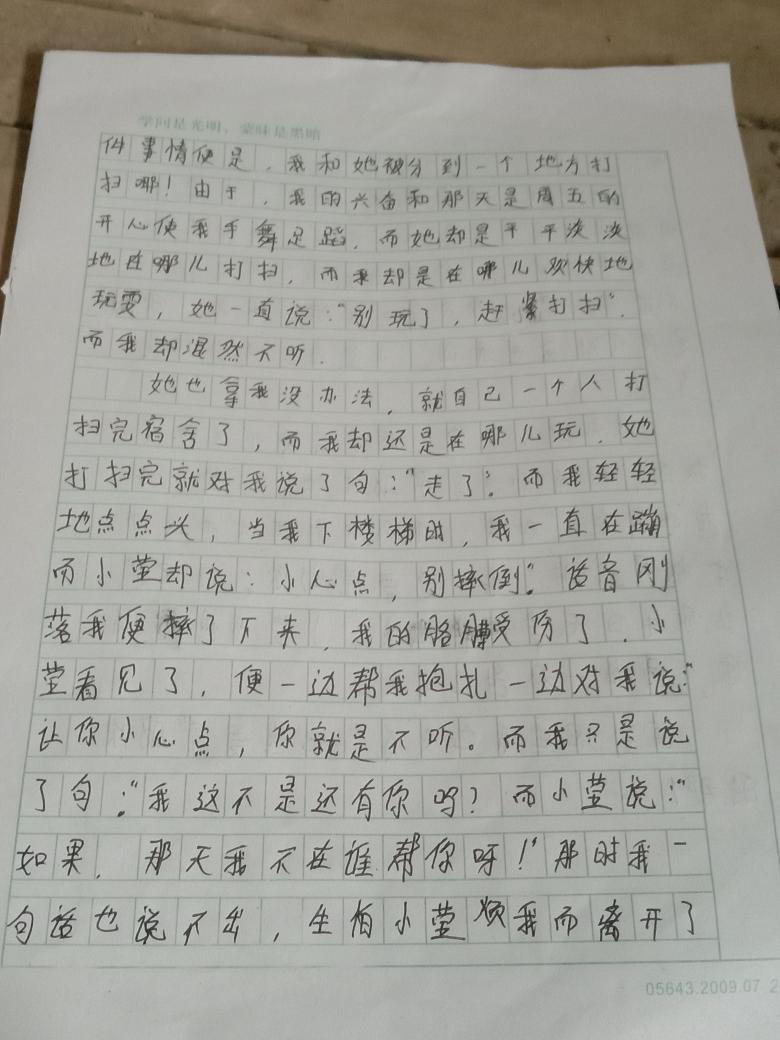 学问是光明，蒙昧是黑暗
件事情便是，我和她被分到一个地方打
扫哪！由于，我的兴奋和那天是周五的
开心使我手舞足蹈，而她却是平平淡淡
地在哪儿打扫，而我却是在哪儿欢快地
玩耍，她一直说：“别玩了，赶紧打扫”.
而我却混然不听.
她也拿我没办法，就自己一个人打
扫完宿舍了，而我却还是在哪儿玩.她
打扫完就对我说了句：“走了”.而我轻轻
地点点头，当我下楼梯时，我一直在蹦
而小莹却说：小心点，别摔倒.”话音刚
落我便摔了下来，我的胳膊受伤了.小
莹看见了，便一边帮我抱扎一边对我说：“
让你小心点，你就是不听。而我只是说
了句：“我这不是还有你吗？而小莹说：“
如果，那天我不在谁帮你呀！”那时我一
句话也说不出，生怕小莹烦我而离开了
05643.2009.07 2